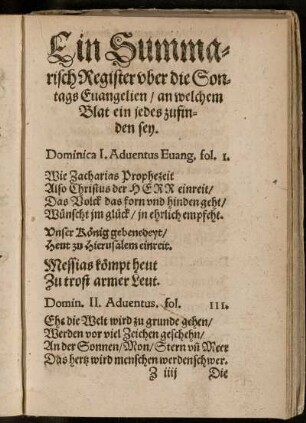 Ein Summa-
risch Register vber die Son-
tags Euangelien / an welchem
Blat ein jedes zufin-
den sey.
Dominica I. Aduentus Euang. fol. 1.
Wie Zacharias Prophezeit
Also Christus der HERR einreit /
Das Volck das forn vnd hinden geht /
Wünscht jm glück / jn ehrlich empfeht.
Vnser König gebenedeyt /
Heut zu Hierusalem einreit.
Messias kömpt heut
Zu trost armer Leut.
Domin. II. Aduentus. fol. III.
Ehe die Welt wird zu grunde gehen /
Werden vor viel Zeichen geschehn /
An der Sonnen / Mon / Stern vñ Meer
Das hertz wird menschen werden schwer.
Z iiij Die